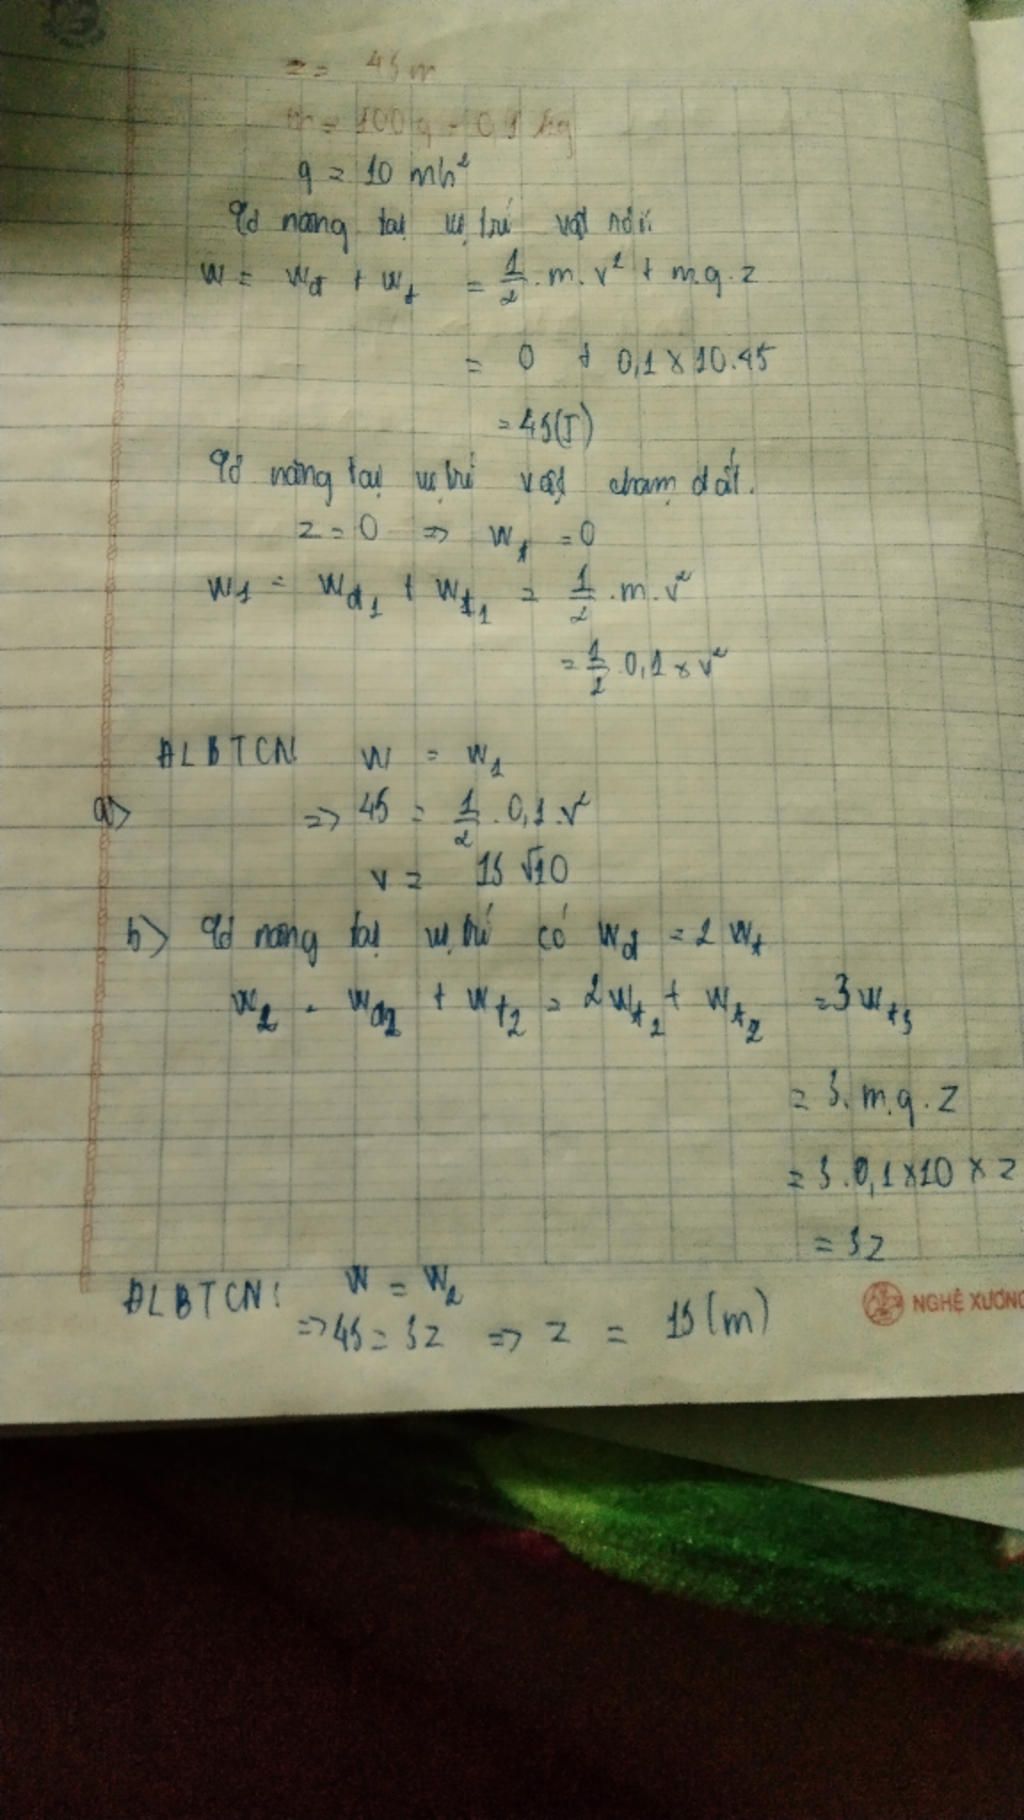 z = 45 m
m = 100 g = 0,1 kg
g = 10 m/s²
Cơ năng tại vị trí vật rơi:
W = Wđ + Wt = 1/2 . m. v² + m.g. z
= 0 + 0,1 x 10.45
= 45(J)
Cơ năng tại vị trí vật chạm đất.
z = 0 => Wt = 0
W1 = Wđ1 + Wt1 = 1/2 . m. v²
= 1/2 . 0,1 x v²
ĐLBTCN: W = W1
a> => 45 = 1/2 . 0,1 . v²
v = 15 √10
b> Cơ năng tại vị trí có Wđ = 2 Wt
W2 = Wđ2 + Wt2 = 2Wt2 + Wt2 = 3Wt3
= 3. m.g. z
= 3 . 0,1 x 10 x z
= 3z
ĐLBTCN: W = W2
=> 45 = 3z => z = 15 (m)
NGHỆ XƯƠNG